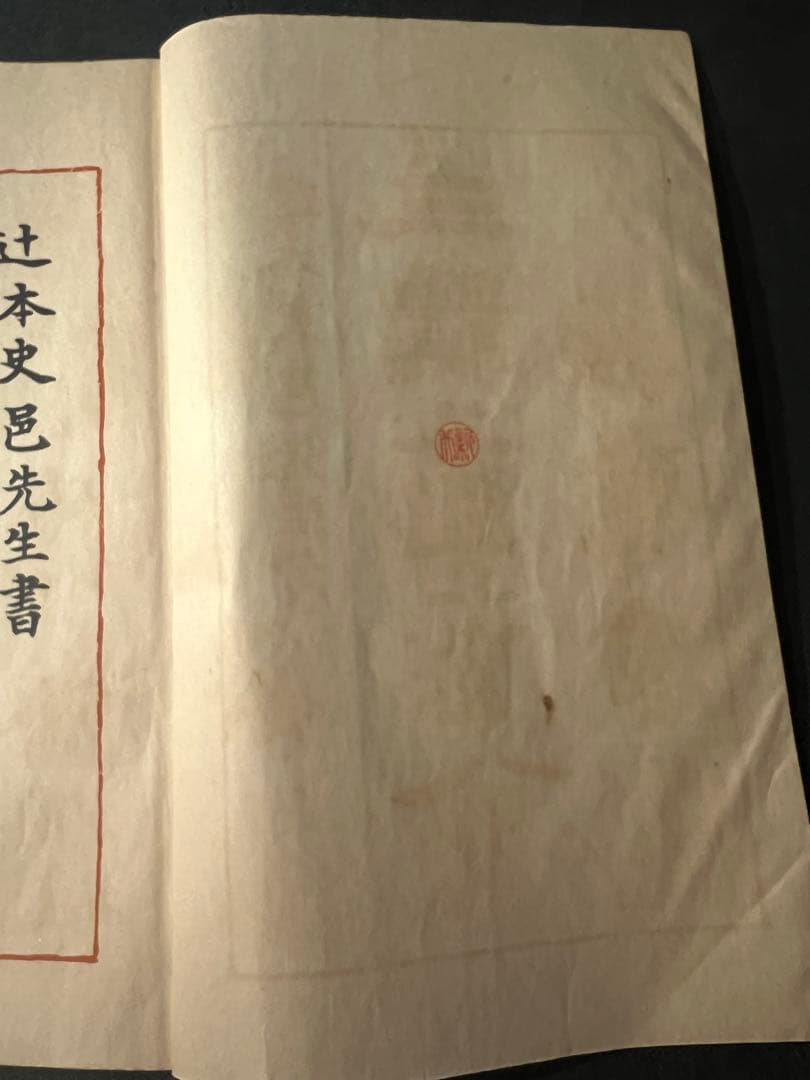 辻本史邑先生書